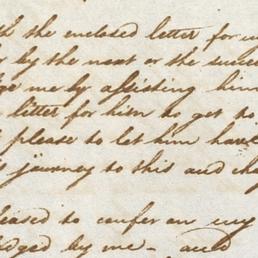 th the enclosed letter for
by the next or the
me by assisting him
a litter for him to get to
please to let him have
journey to this and
pleased to confer on my
by me – and